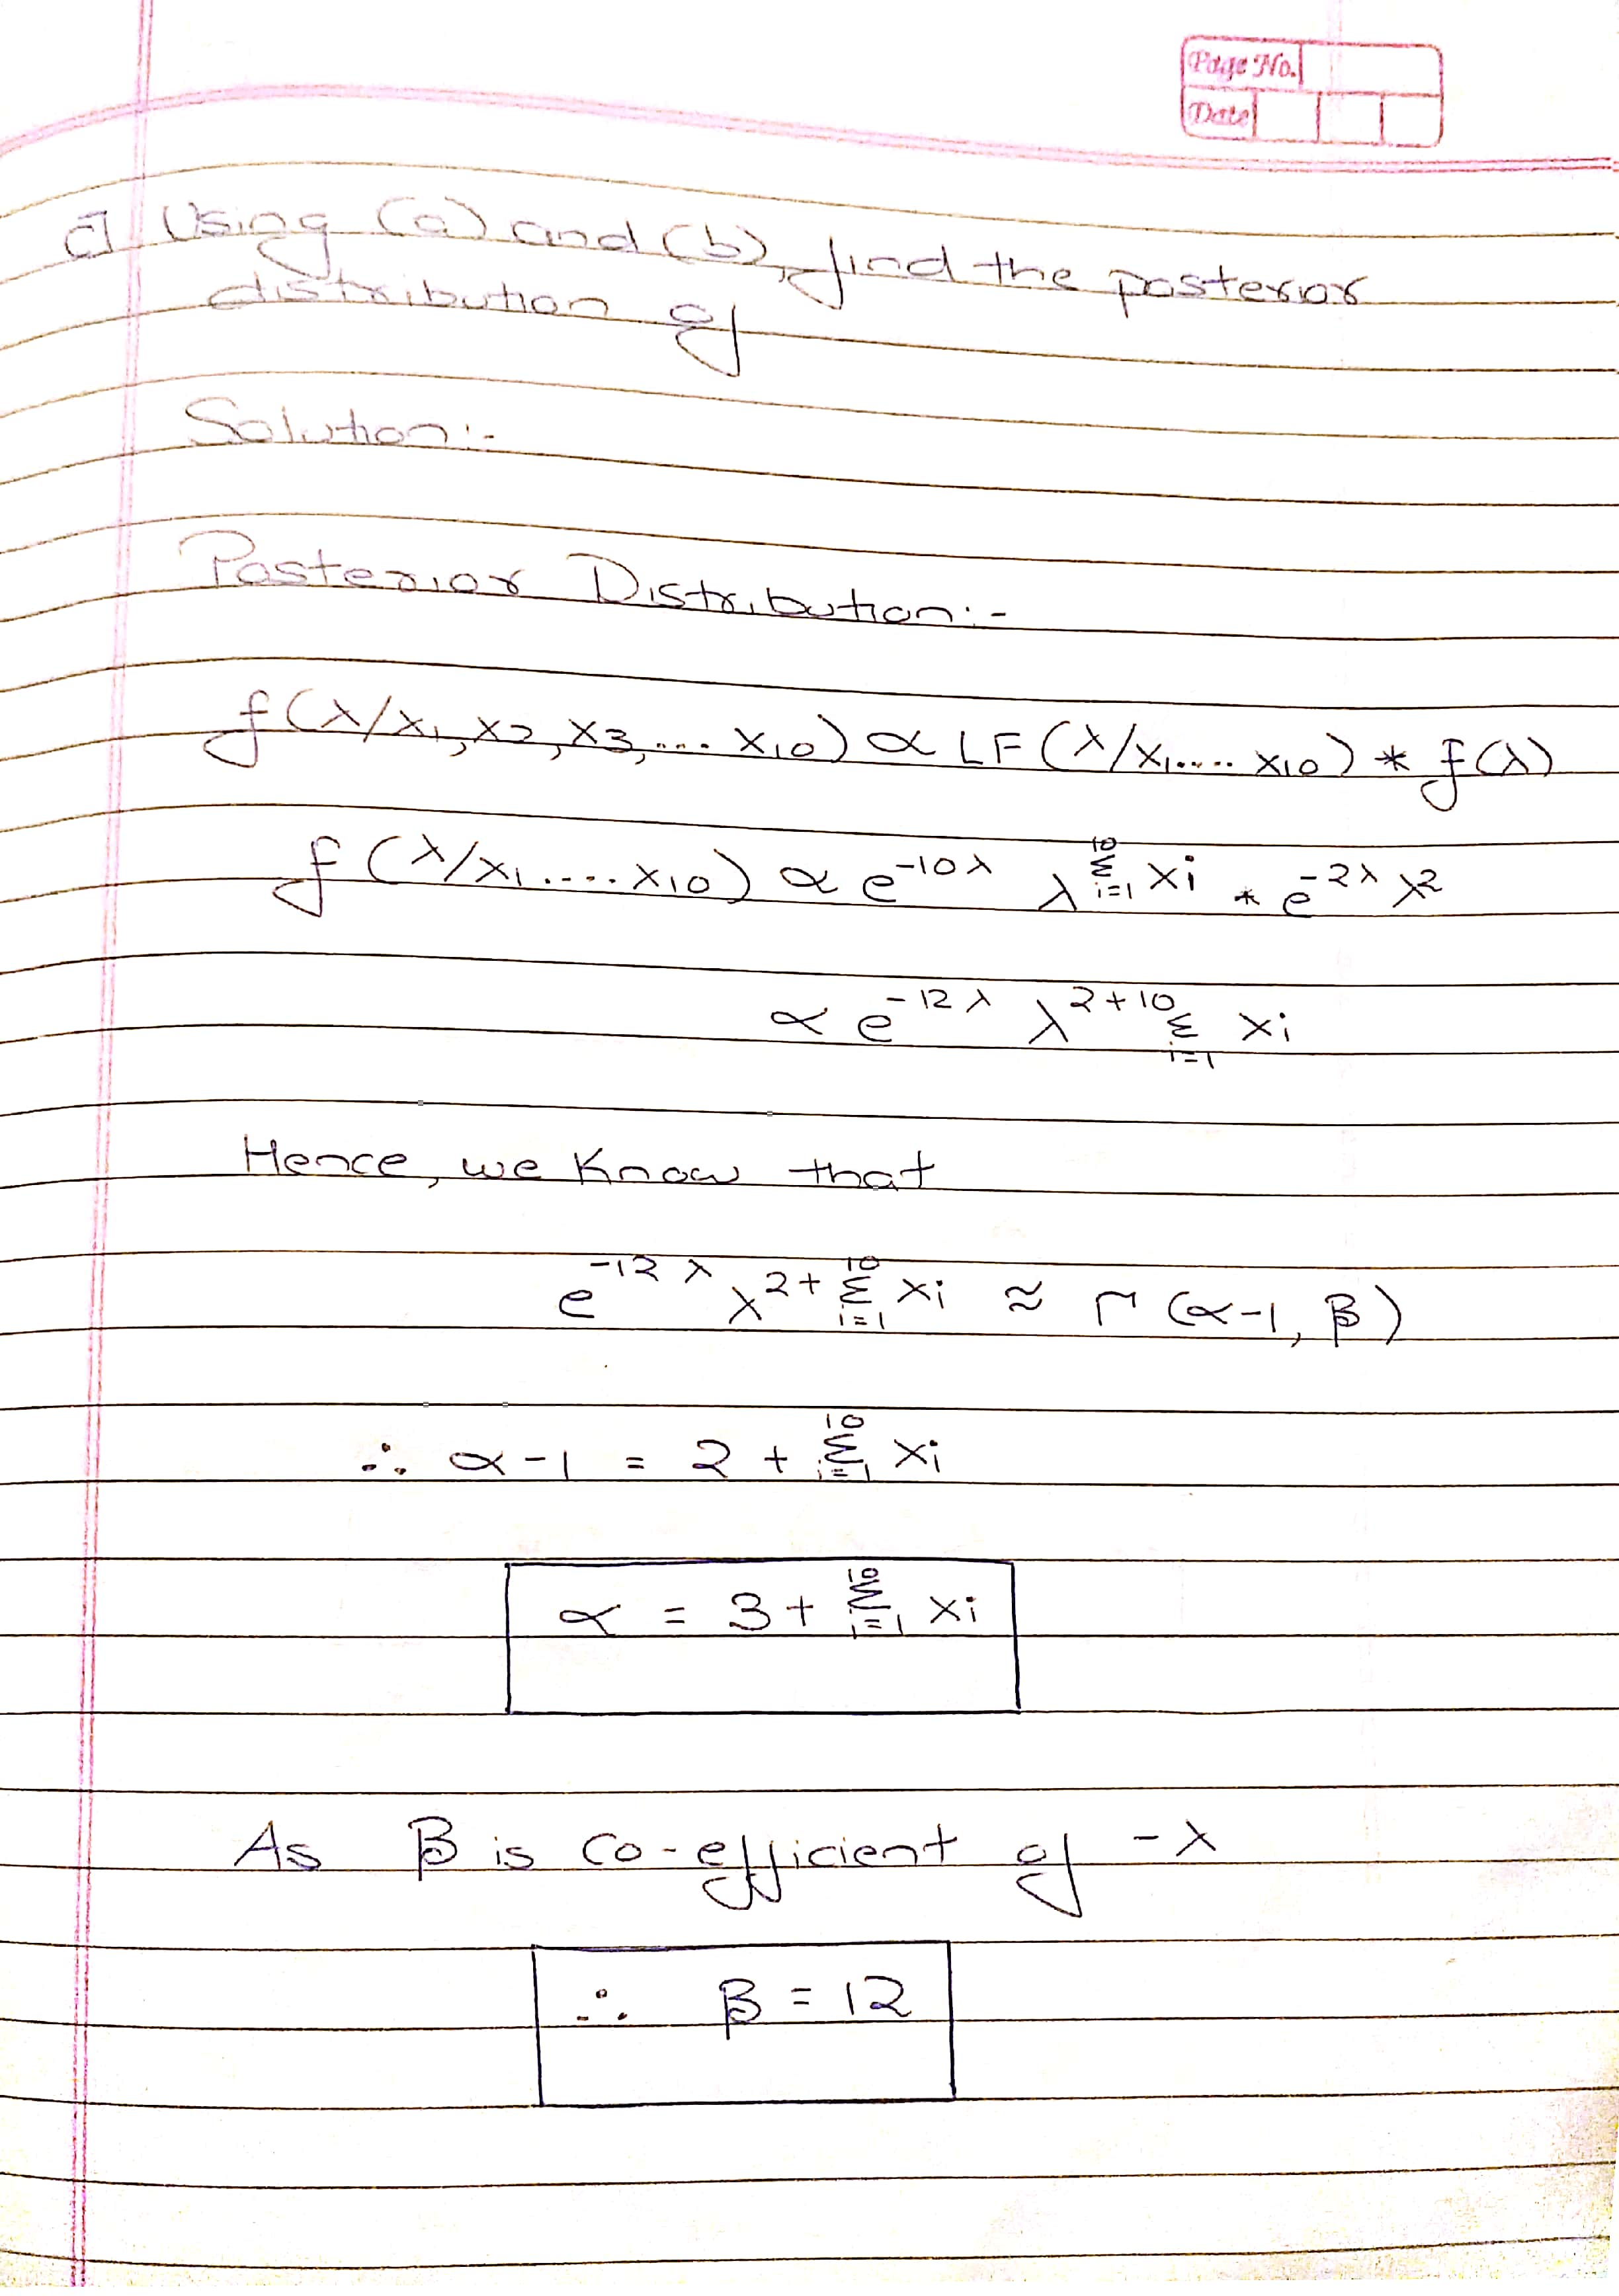 Page No.
Date
c] Using (a) and (b), find the posterior
distribution of
Solution:-
Posterior Distribution:-
f(λ/x₁,x₂,x₃,... x₁₀) ∝ LF(λ/x₁..... x₁₀) * f(λ)
f(λ/x₁.....x₁₀) ∝ e^{-10λ} λ^{\sum_{i=1}^{10} xi} * e^{-2λ} λ²
∝ e^{-12λ} λ^{2+\sum_{i=1}^{10} xi}
Hence, we know that
e^{-12λ} λ^{2+\sum_{i=1}^{10} xi} ≈ Γ(α-1, β)
∴ α-1 = 2 + \sum_{i=1}^{10} xi
α = 3 + \sum_{i=1}^{10} xi
As β is co-efficient of -λ
∴ β = 12